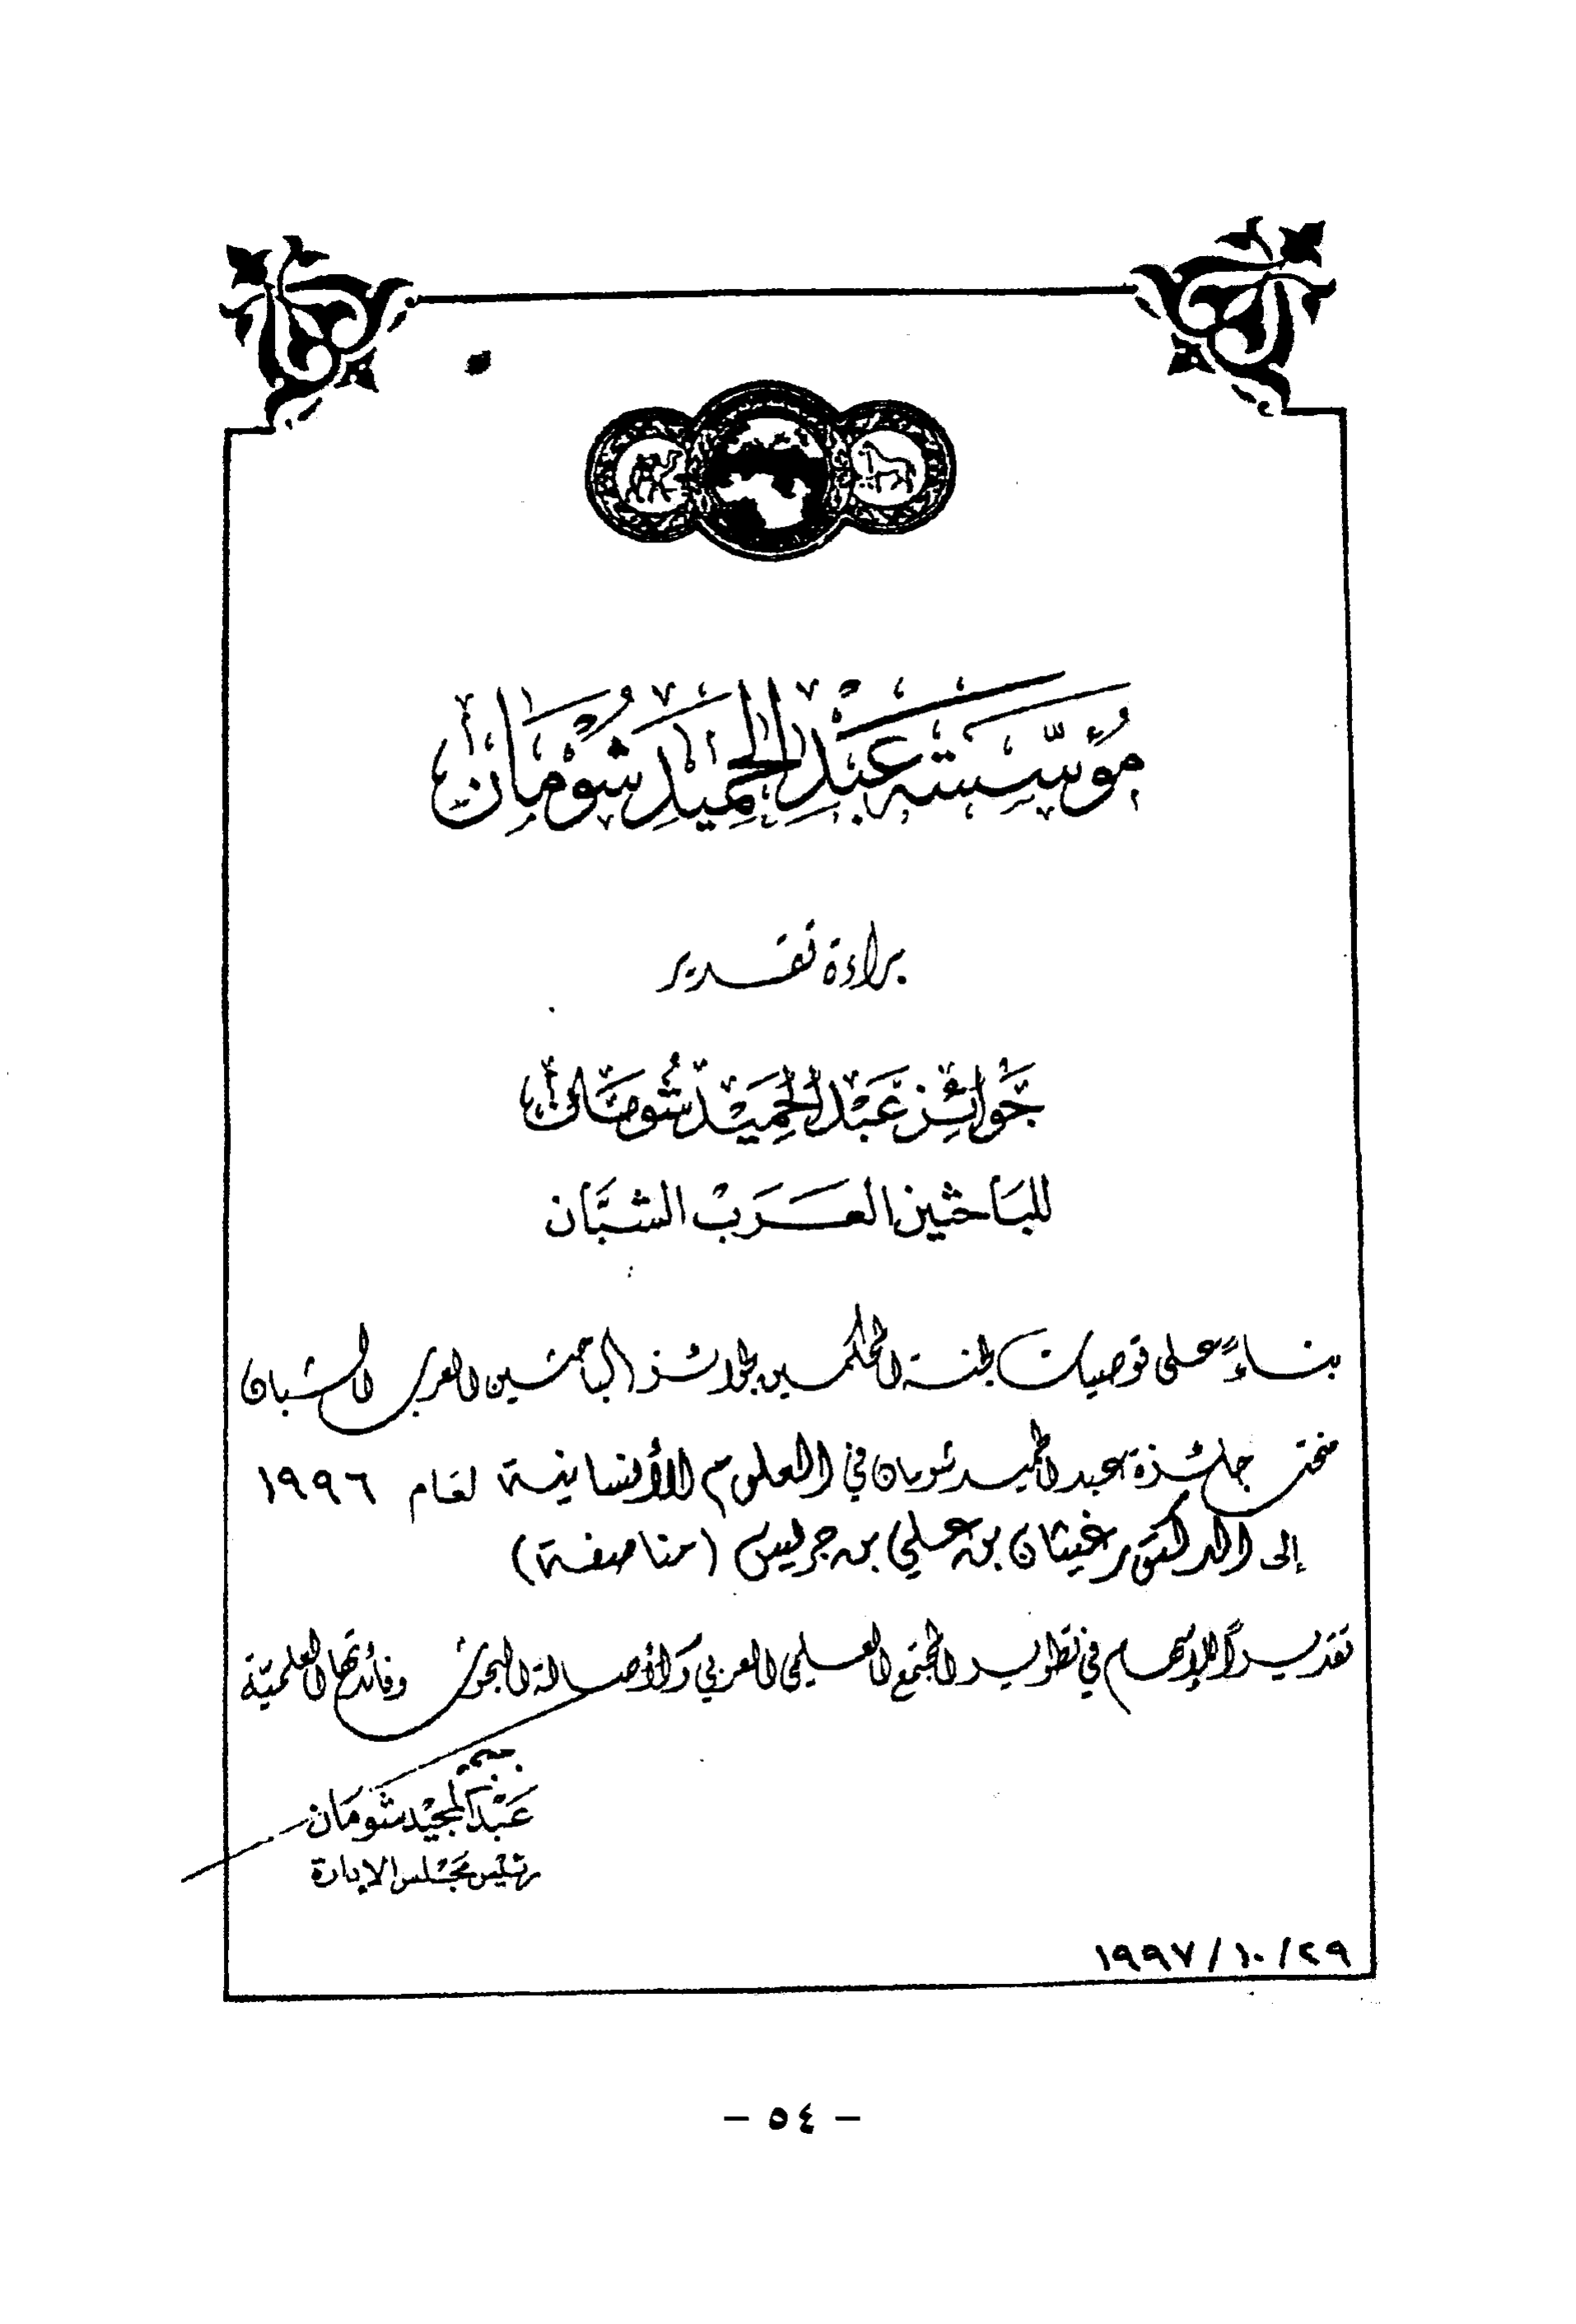 مؤسسة عبد الحميد شومان
براءة تقدير
جوائز عبد الحميد شومان
للباحثين العرب الشبان
بناءً على توصيات لجنة المحكمين لجوائز الباحثين العرب الشبان
منحت جائزة عبد الحميد شومان في العلوم الأنسانية لعام ١٩٩٦
إلى الدكتور غيثان بن علي بن جريس (مناصفة)
تقديراً للإسهام في تطوير المجتمع العلمي العربي ولأصالة البحوث وفائدتها العلميّة
عبد المجيد شومان
رئيس مجلس الإدارة
١٩٩٧/١٠/٢٩
- ٥٤ -